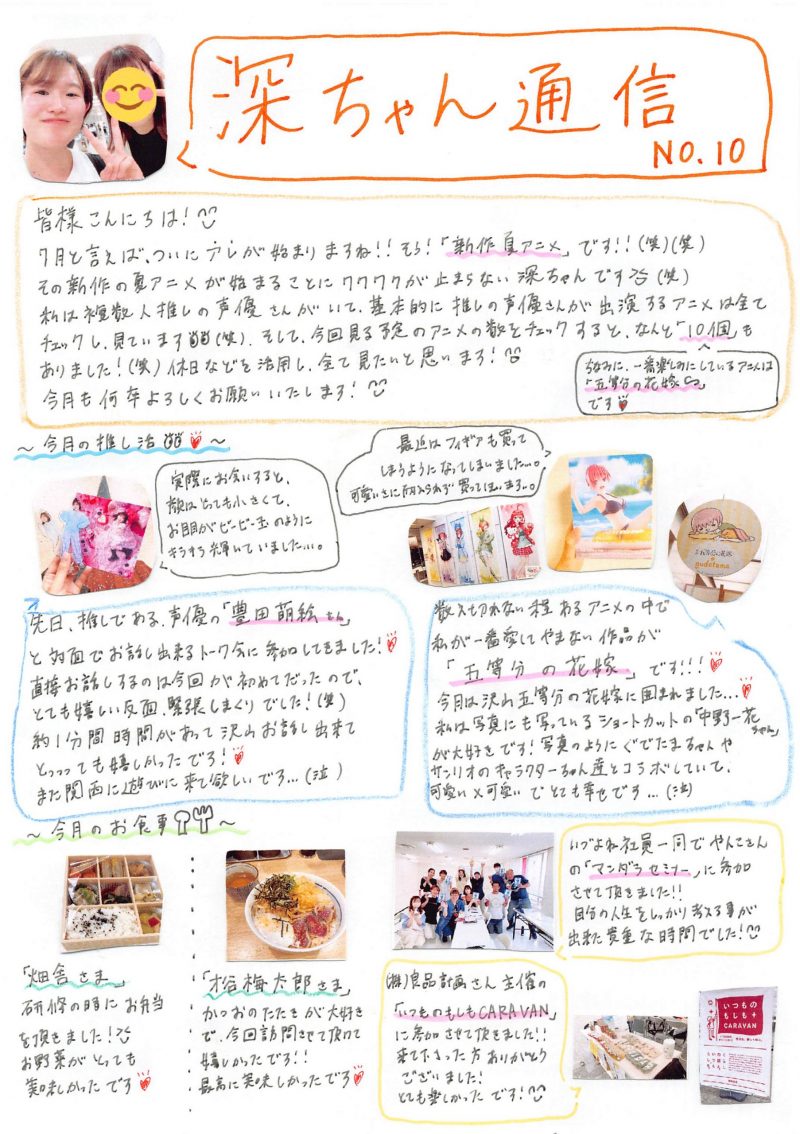 深ちゃん通信
NO.10
皆様こんにちは!
7月と言えば、ついにアレが始まりますね!!そら!「新作夏アニメ」です!!(笑)(笑)
その新作の夏アニメが始まることにワクワクが止まらない深ちゃんです(笑)
私は複数人推しの声優さんがいて、基本的に推しの声優さんが出演するアニメは全て
チェックし、見ています(笑)。そして、今回見る予定のアニメの数をチェックすると、なんと「10個」も
ありました!(笑)休日などを活用し、全て見たいと思います!
今月も何卒よろしくお願いいたします!
ちなみに、一番楽しみにしているアニメは
「五等分の花嫁∽」
です
~今月の推し活~
実際にお会いすると、
顔はとっても小さくて、
お目めがビービー玉のように
キラキラ輝いていました...。
最近はフィギアも買って
しまうようになってしまいました...。
可愛いさに耐えられず買ってしまいます...。
五等分の花嫁
gudetama
先日、推しである、声優の「豊田萌絵さん」
と対面でお話し出来るトーク会に参加してきました!
直接お話しするのは今回が初めてだったので、
とても嬉しい反面、緊張しまくりでした!(笑)
約1分間時間があって沢山お話し出来て
とっっっても嬉しかったです!
また関西に遊びに来て欲しいです...(泣)
数え切れない程あるアニメの中で
私が一番愛してやまない作品が
「五等分の花嫁」です!!!
今月は沢山五等分の花嫁に囲まれました...
私は写真にも写っているショートカットの「中野一花ちゃん」
が大好きです!写真のようにぐでたまちゃんや
サンリオのキャラクターちゃん達とコラボしていて、
可愛い×可愛いでとても幸せです...(泣)
~今月のお食事~
「畑舎さま」
研修の時にお弁当
を頂きました!
お野菜がとっても
美味しかったです
「松梅太郎さま」
かつおのたたきが大好き
で、今回訪問させて頂けて
嬉しかったです!!
最高に美味しかったです
いづよね社員一同でやんこさん
の「マンダラセミナー」に参加
させて頂きました!!
自分の人生をしっかり考える事が
出来た貴重な時間でした!
(株)良品計画さん主催の
「いつものもしもCARAVAN」
に参加させて頂きました!!
来て下さった方ありがとう
ございました!
とても楽しかったです!
いつもの
もしも+
CARAVAN